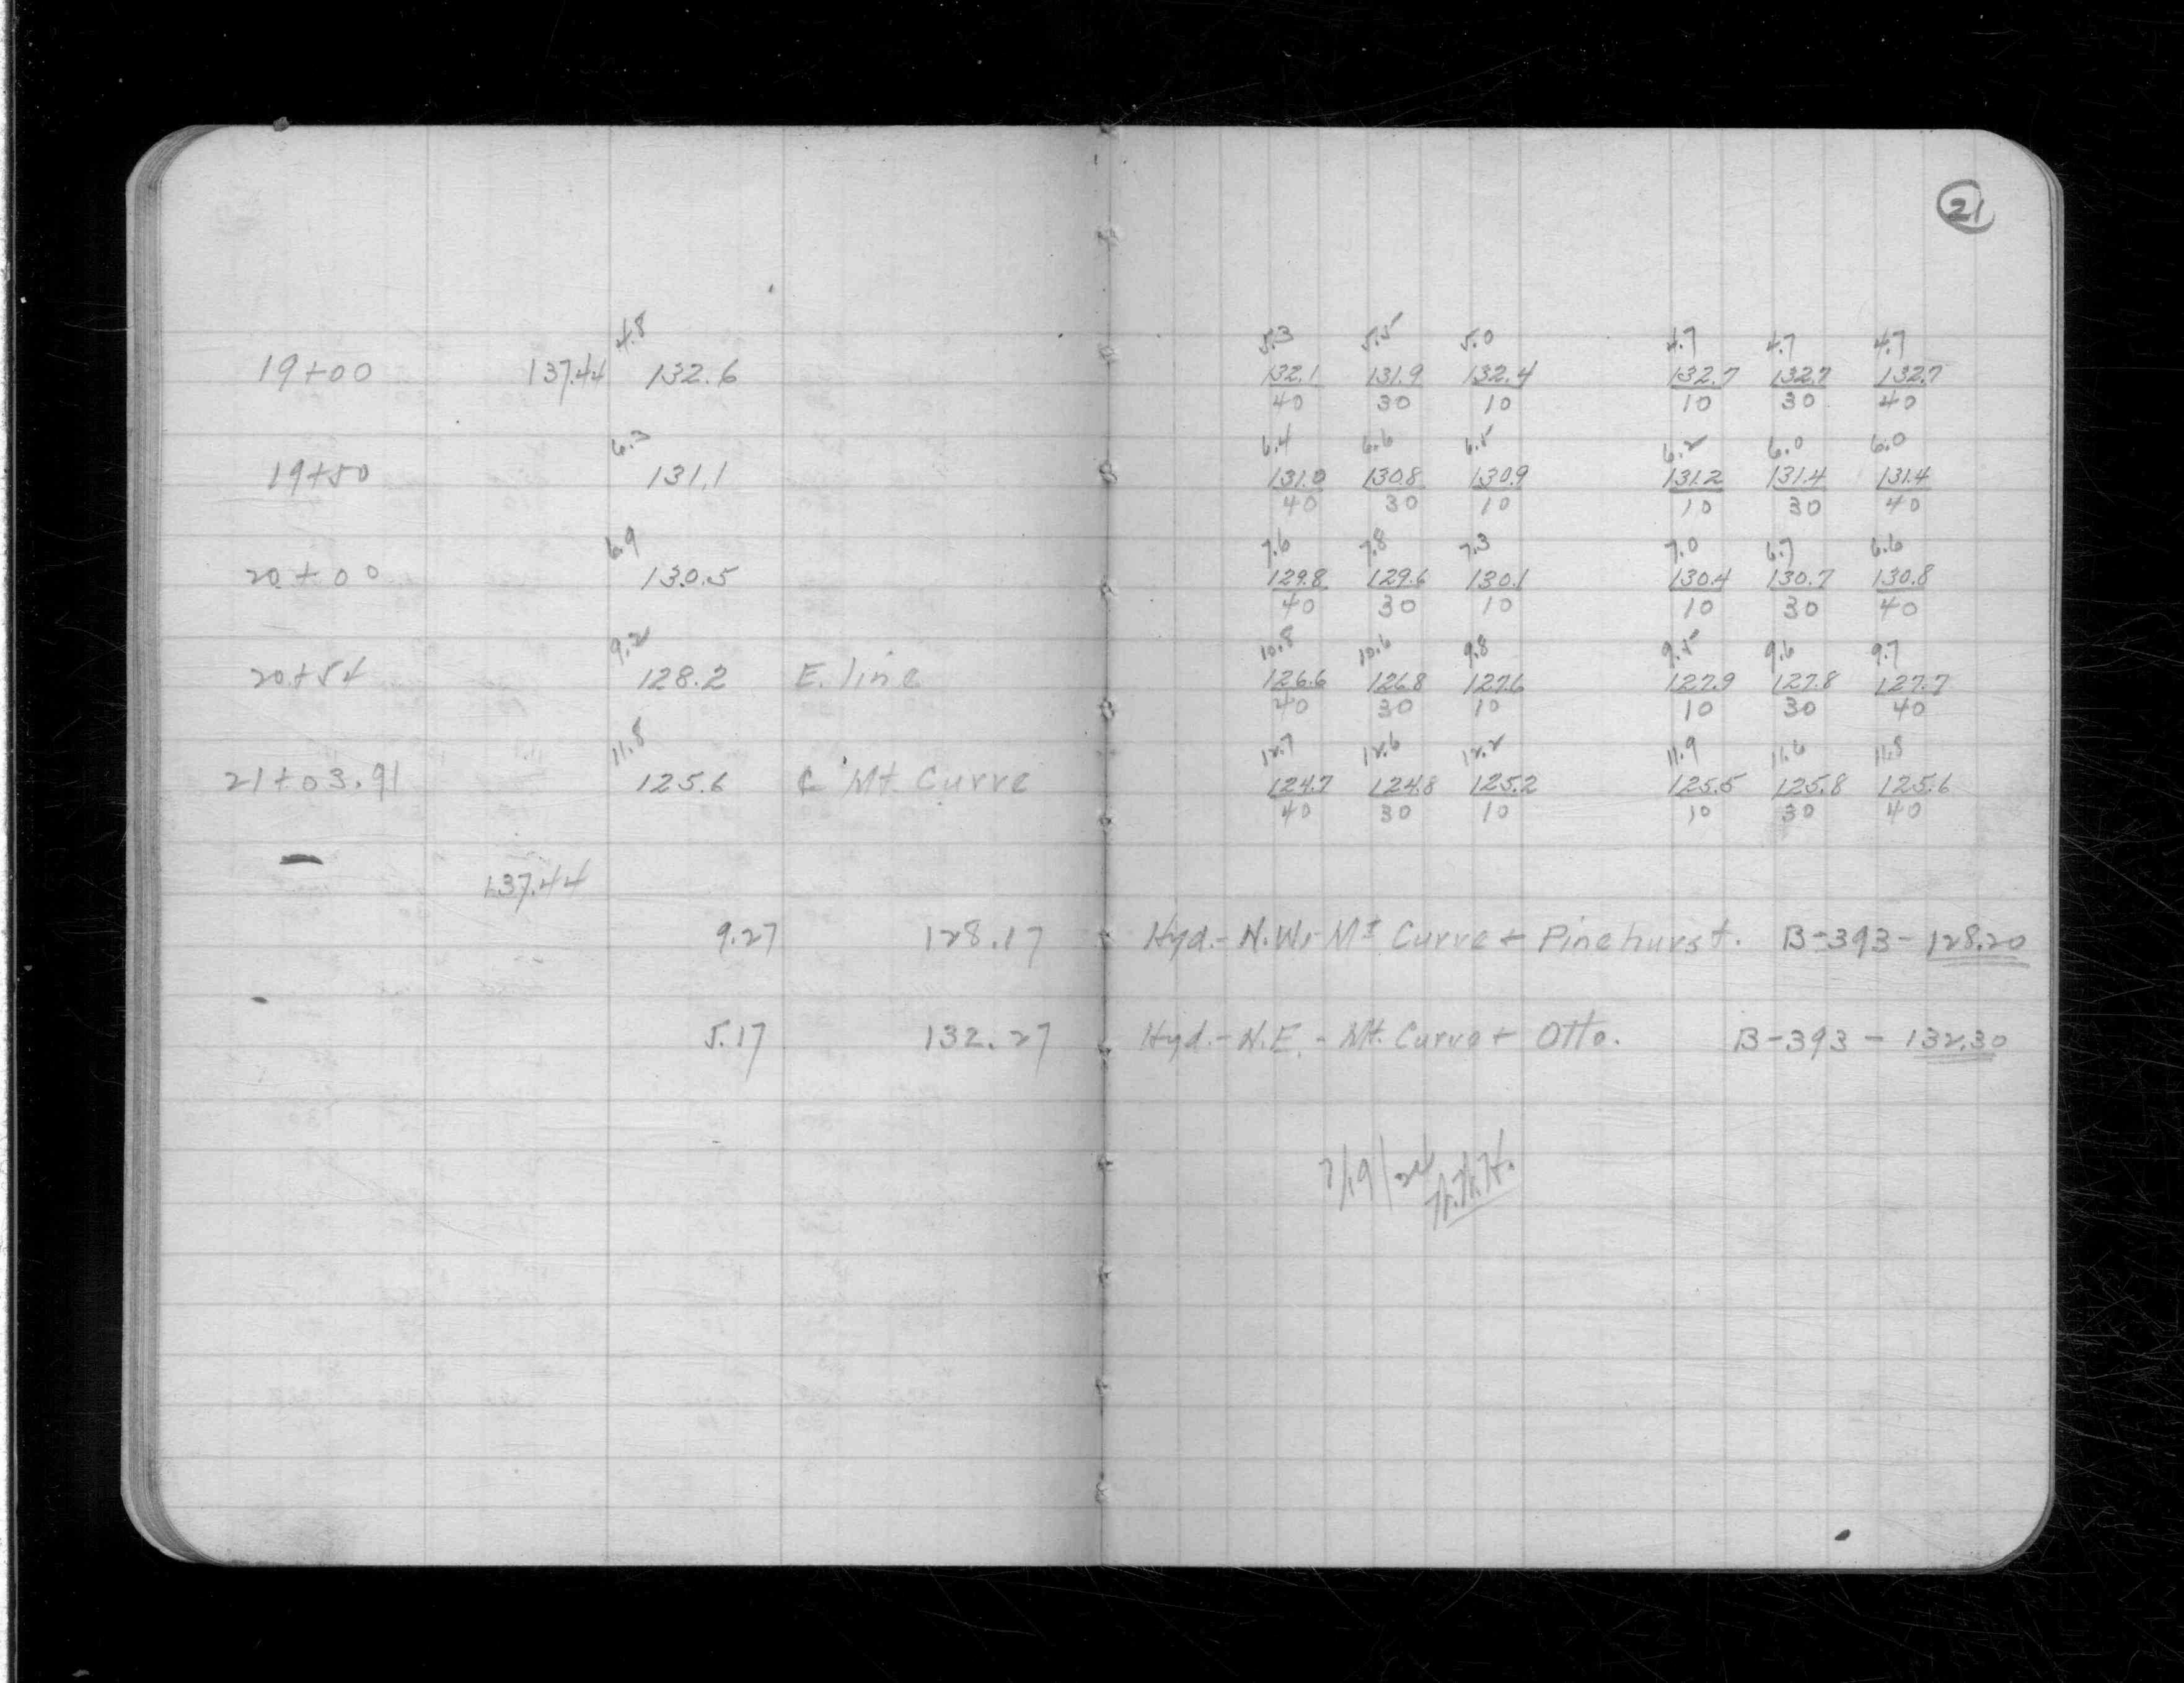 21
4.8 5.3 5.5 5.0 4.7 4.7 4.7
19+00 137.44 132.6 132.1 131.9 132.4 132.7 132.7 132.7
40 30 10 10 30 40
6.3 6.4 6.6 6.5 6.2 6.0 6.0
19+50 131.1 131.0 130.8 130.9 131.2 131.4 131.4
40 30 10 10 30 40
6.9 7.6 7.8 7.3 7.0 6.7 6.6
20+00 130.5 129.8 129.6 130.1 130.4 130.7 130.8
40 30 10 10 30 40
9.2 10.8 10.6 9.8 9.5 9.6 9.7
20+54 128.2 E. line 126.6 126.8 127.6 127.9 127.8 127.7
40 30 10 10 30 40
11.8 12.7 12.6 12.2 11.9 11.6 11.8
21+03.91 125.6 ℄ Mt. Curve 124.7 124.8 125.2 125.5 125.8 125.6
40 30 10 10 30 40
137.44
9.27 128.17 Hyd.- N.W.- Mt Curve + Pinehurst. B-393-128.20
5.17 132.27 Hyd.- N.E. - Mt. Curve + Otto. B-393 - 132.30
7/19/24